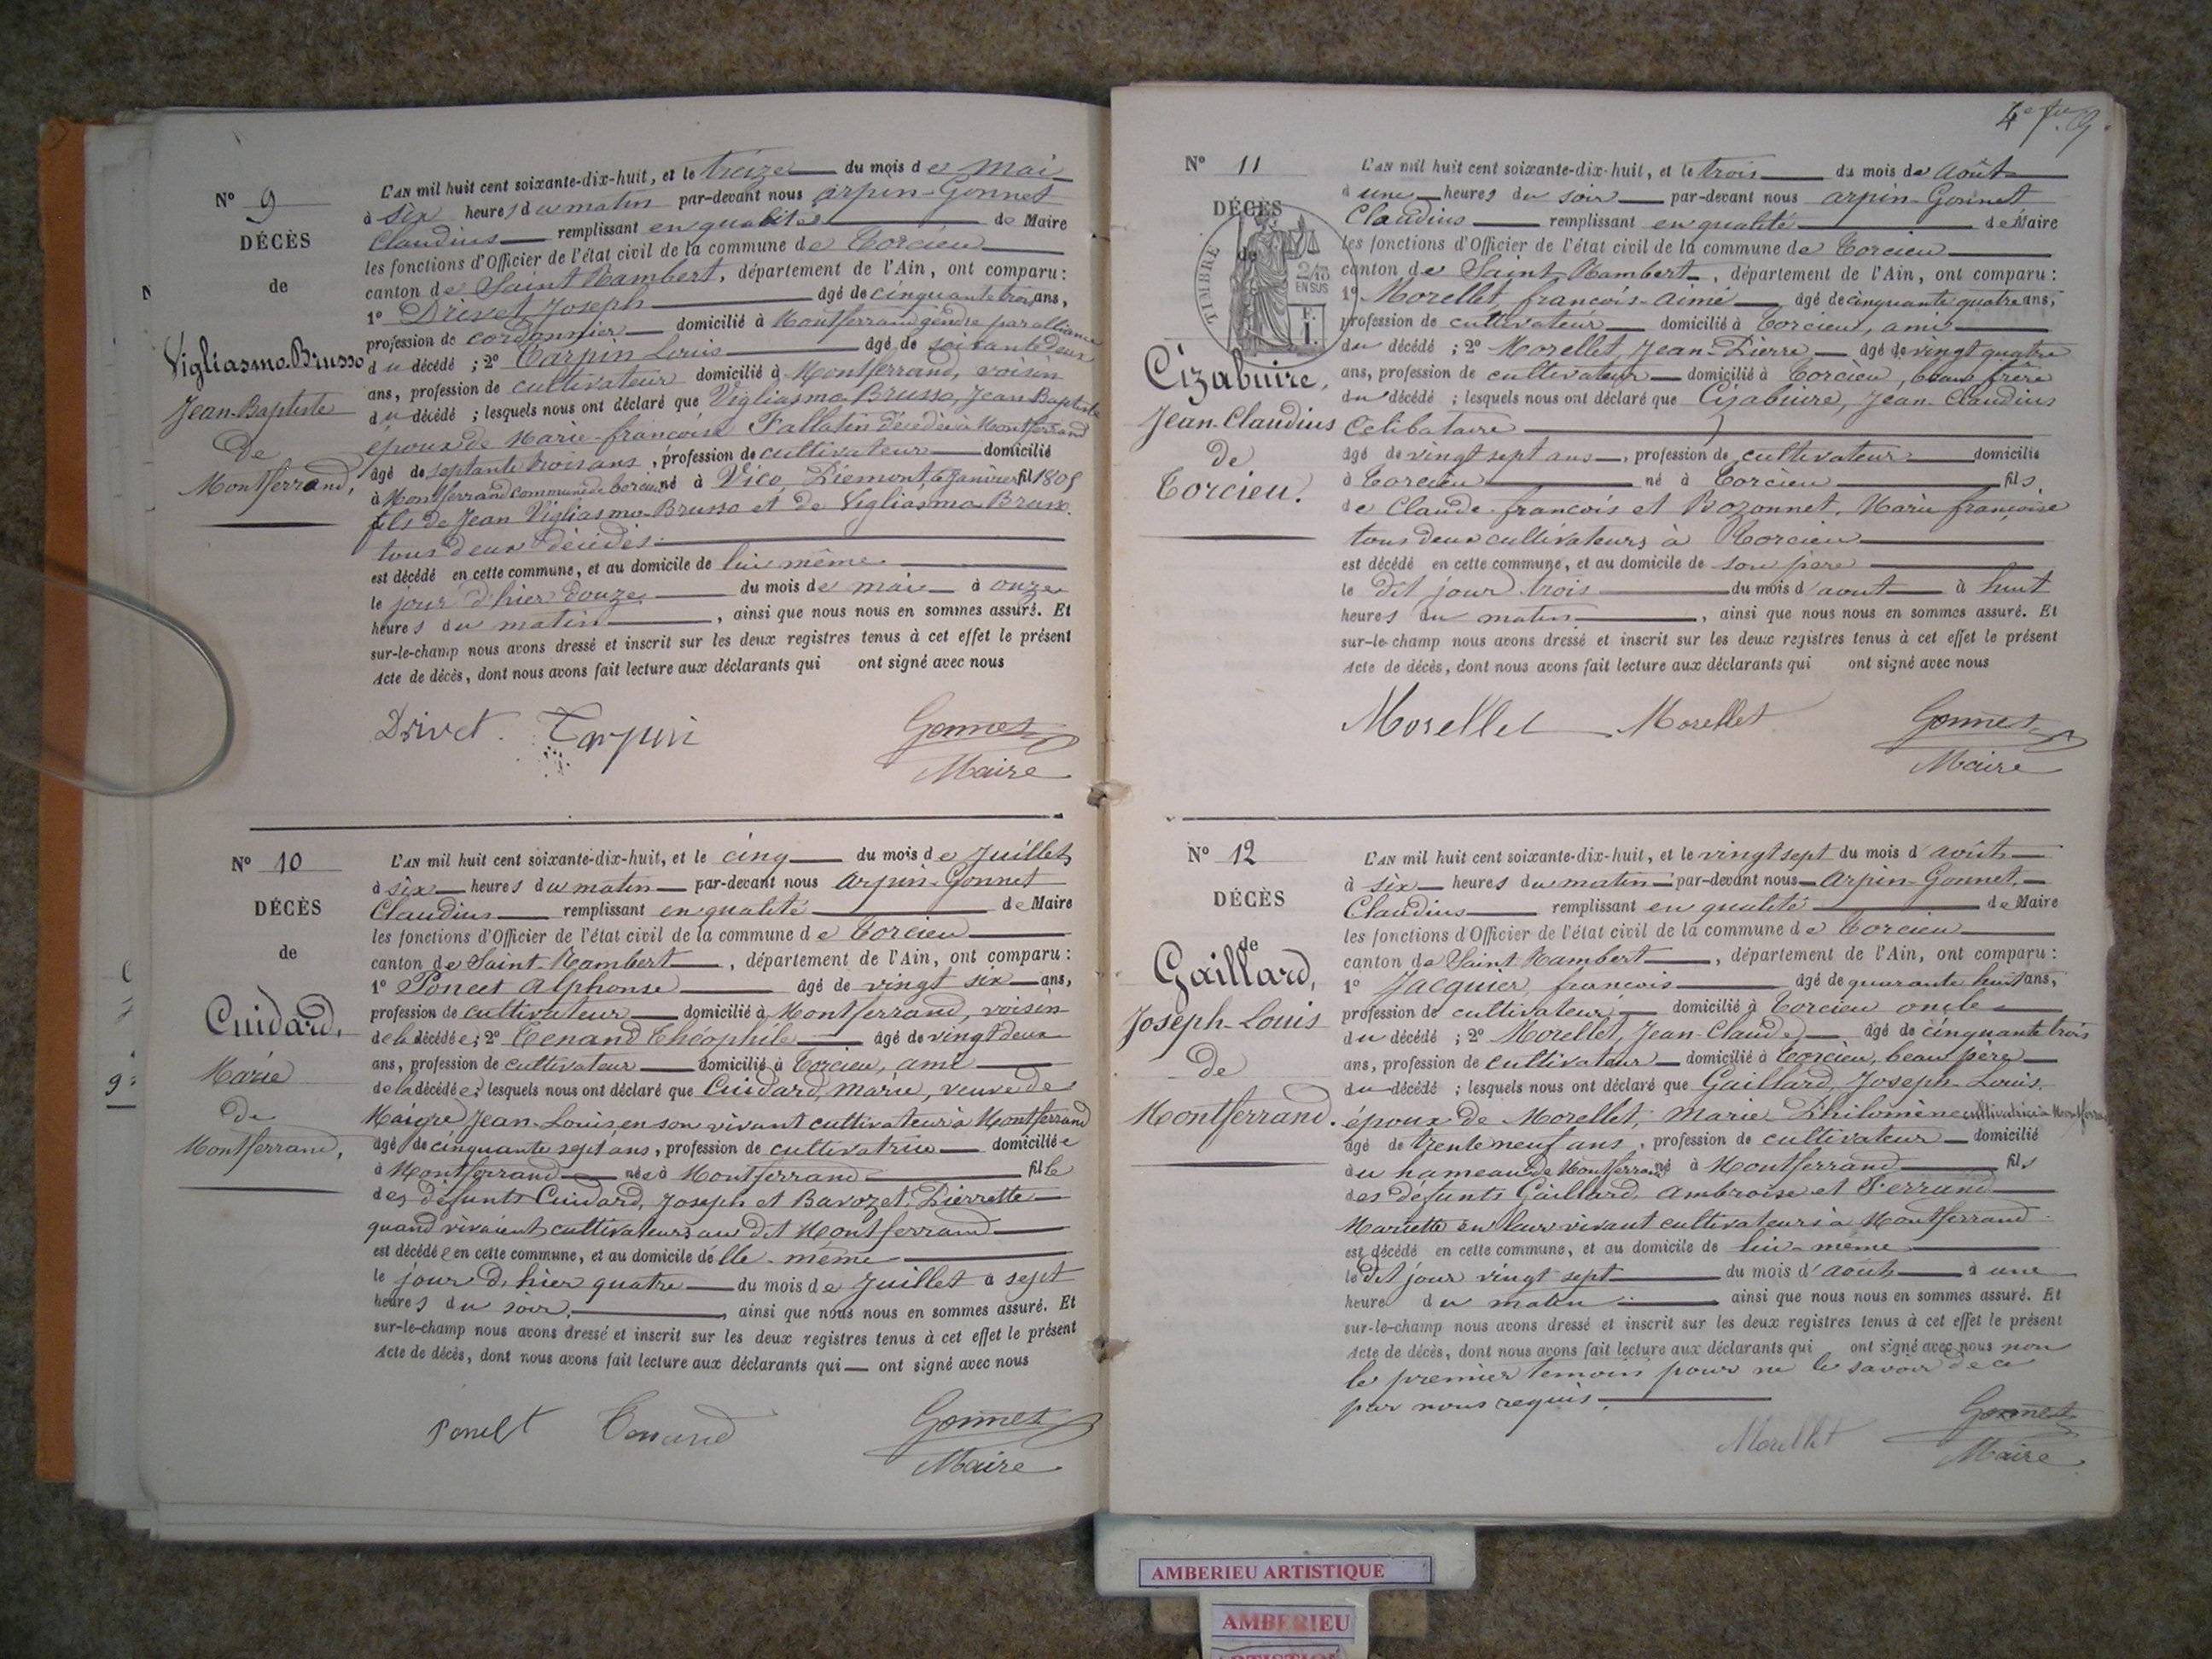 N° 9
DÉCÈS
de
Vigliasmo-Brusso
Jean-Baptiste
de
Montferrand,
L'AN mil huit cent soixante-dix-huit, et le treize du mois de Mai
à six heures du matin par-devant nous Arpin-Gonnet
Claudius remplissant en qualité de Maire
les fonctions d'Officier de l'état civil de la commune de Torcieu
canton de Saint Rambert, département de l'Ain, ont comparu :
1° Drivet Joseph âgé de cinquante trois ans,
profession de cordonnier domicilié à Montferrand gendre par alliance
du décédé ; 2° Tarpin Louis âgé de soixante deux
ans, profession de cultivateur domicilié à Montferrand, voisin
du décédé ; lesquels nous ont déclaré que Vigliasmo-Brusso, Jean Baptiste
époux de Marie-françoise Fallatin décédée à Montferrand
âgé de septante trois ans, profession de cultivateur domicilié
à Montferrand commune de Torcieu né à Vico, Piémont, janvier 1805
fils de Jean Vigliasmo-Brusso et de Vigliasmo-Brusso.
tous deux décédés.
est décédé en cette commune, et au domicile de lui même
le jour d'hier douze du mois de mai à onze
heures du matin, ainsi que nous nous en sommes assuré. Et
sur-le-champ nous avons dressé et inscrit sur les deux registres tenus à cet effet le présent
Acte de décès, dont nous avons fait lecture aux déclarants qui ont signé avec nous
Drivet. Tarpin Gonnet
Maire
N° 10
DÉCÈS
de
Cuidard,
Marie
de
Montferrand,
L'AN mil huit cent soixante-dix-huit, et le cinq du mois de Juillet
à six heures du matin par-devant nous Arpin-Gonnet
Claudius remplissant en qualité de Maire
les fonctions d'Officier de l'état civil de la commune de Torcieu
canton de Saint-Rambert, département de l'Ain, ont comparu :
1° Poncet Alphonse âgé de vingt six ans,
profession de cultivateur domicilié à Montferrand, voisin
de la décédée ; 2° Tenand Théophile âgé de vingt deux
ans, profession de cultivateur domicilié à Torcieu, ami
de la décédée ; lesquels nous ont déclaré que Cuidard, marie, veuve de
Maigre Jean-Louis en son vivant cultivateur à Montferrand
âgé de cinquante sept ans, profession de cultivatrice domiciliée
à Montferrand née à Montferrand fille
des défunts Cuidard, Joseph et Bavozet, Pierrette
quand vivaient cultivateurs au dit Montferrand
est décédée en cette commune, et au domicile d'elle-même
le jour d'hier quatre du mois de Juillet à sept
heures du soir, ainsi que nous nous en sommes assuré. Et
sur-le-champ nous avons dressé et inscrit sur les deux registres tenus à cet effet le présent
Acte de décès, dont nous avons fait lecture aux déclarants qui ont signé avec nous
Poncet Tenand Gonnet
Maire
N° 11
DÉCÈS
de
TIMBRE
2/10 EN SUS
F. 1.
Cizabuire,
Jean-Claudius
de
Torcieu.
L'AN mil huit cent soixante-dix-huit, et le trois du mois de Août
à une heures du soir par-devant nous Arpin-Gonnet
Claudius remplissant en qualité de Maire
les fonctions d'Officier de l'état civil de la commune de Torcieu
canton de Saint-Rambert, département de l'Ain, ont comparu :
1° Morellet, françois-aimé âgé de cinquante quatre ans,
profession de cultivateur domicilié à Torcieu, ami
du décédé ; 2° Morellet, Jean-Pierre, âgé de vingt quatre
ans, profession de cultivateur domicilié à Torcieu, beau frère
du décédé ; lesquels nous ont déclaré que Cizabuire, Jean Claudius
Célibataire
âgé de vingt sept ans, profession de cultivateur domicilié
à Torcieu né à Torcieu fils
de Claude-françois et Bozonnet, Marie françoise
tous deux cultivateurs à Torcieu
est décédé en cette commune, et au domicile de son père
le dit jour trois du mois d'août à huit
heures du matin, ainsi que nous nous en sommes assuré. Et
sur-le-champ nous avons dressé et inscrit sur les deux registres tenus à cet effet le présent
Acte de décès, dont nous avons fait lecture aux déclarants qui ont signé avec nous
Morellet Morellet Gonnet
Maire
N° 12
DÉCÈS
de
Gaillard,
Joseph-Louis
de
Montferrand.
L'AN mil huit cent soixante-dix-huit, et le vingt sept du mois d'août
à six heures du matin par-devant nous Arpin-Gonnet,
Claudius remplissant en qualité de Maire
les fonctions d'Officier de l'état civil de la commune de Torcieu
canton de Saint Rambert, département de l'Ain, ont comparu :
1° Jacquier, françois âgé de quarante huit ans,
profession de cultivateur domicilié à Torcieu oncle
du décédé ; 2° Morellet, Jean-Claude, âgé de cinquante trois
ans, profession de cultivateur domicilié à Torcieu, beau père
du décédé ; lesquels nous ont déclaré que Gaillard, Joseph-Louis,
époux de Morellet, Marie Philomène cultivatrice à Montferrand
âgé de trente neuf ans, profession de cultivateur domicilié
au hameau de Montferrand né à Montferrand fils
des défunts Gaillard, Ambroise et Ferrand
Mariette en leur vivant cultivateurs à Montferrand.
est décédé en cette commune, et au domicile de lui-même
le dit jour vingt sept du mois d'août à une
heure du matin ainsi que nous nous en sommes assuré. Et
sur-le-champ nous avons dressé et inscrit sur les deux registres tenus à cet effet le présent
Acte de décès, dont nous avons fait lecture aux déclarants qui ont signé avec nous non
le premier témoin pour ne le savoir de ce
par nous requis.
Morellet Gonnet
Maire
AMBERIEU ARTISTIQUE
AMBERIEU
ARTISTIQUE